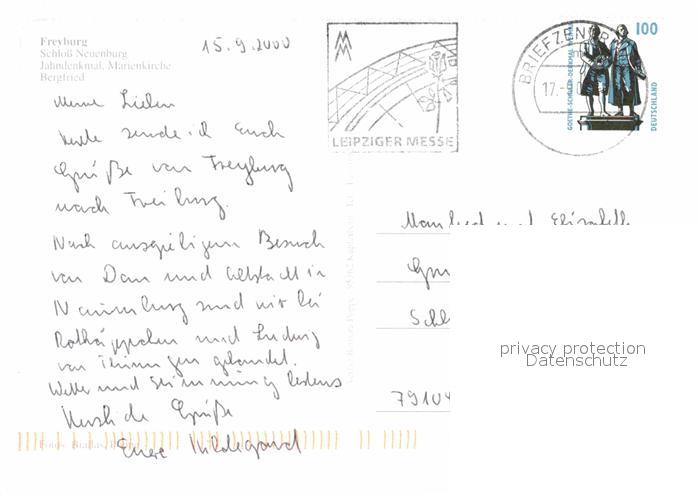 Freyburg
Schloß Neuenburg
Jahndenkmal, Marienkirche
Bergfried
15.9.2000
Meine Lieben
heute sende ich Euch
Grüße von Freyburg
nach Freiburg.
Nach ausgiebigem Besuch
von Dom und Altstadt in
Naumburg sind wir bei
Rotkäppchen und Ludwig
von Thüringen gelandet.
Wetter und Stimmung bestens
Herzliche Grüße
Eure Hildegard
LEIPZIGER MESSE
BRIEFZENTRUM
17.
100
DEUTSCHLAND
GOETHE-SCHILLER-DENKMAL WEIMAR
Manfred und Elisabeth
79104
privacy protection
Datenschutz